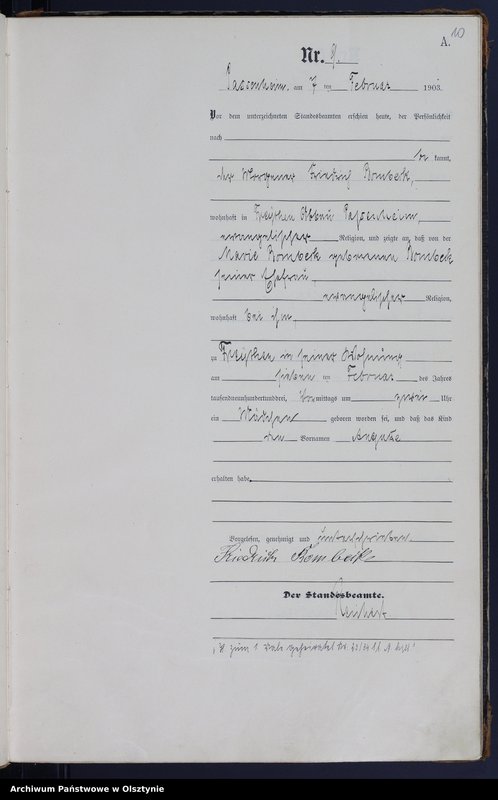 10
A.
Nr. 9.
Passenheim. am 7 ten Februar 1903.
Vor dem unterzeichneten Standesbeamten erschien heute, der Persönlichkeit
nach
be kannt,
der Friedrich Rombeck,
wohnhaft in Abbau Passenheim,
evangelischer Religion, und zeigte an, daß von der
Marie Rombeck geborenen Rombeck
seiner Ehefrau
evangelischer Religion,
wohnhaft bei ihm,
zu in seiner Wohnung
am sieben ten Februar des Jahres
tausendneunhundertunddrei, Vormittags um Uhr
ein Mädchen geboren worden sei, und daß das Kind
den Vornamen Auguste
erhalten habe.
Vorgelesen, genehmigt und unterschrieben
Friedrich Rombeck
Der Standesbeamte.
zum 1. Male geheiratet Nr.
Archiwum Państwowe w Olsztynie